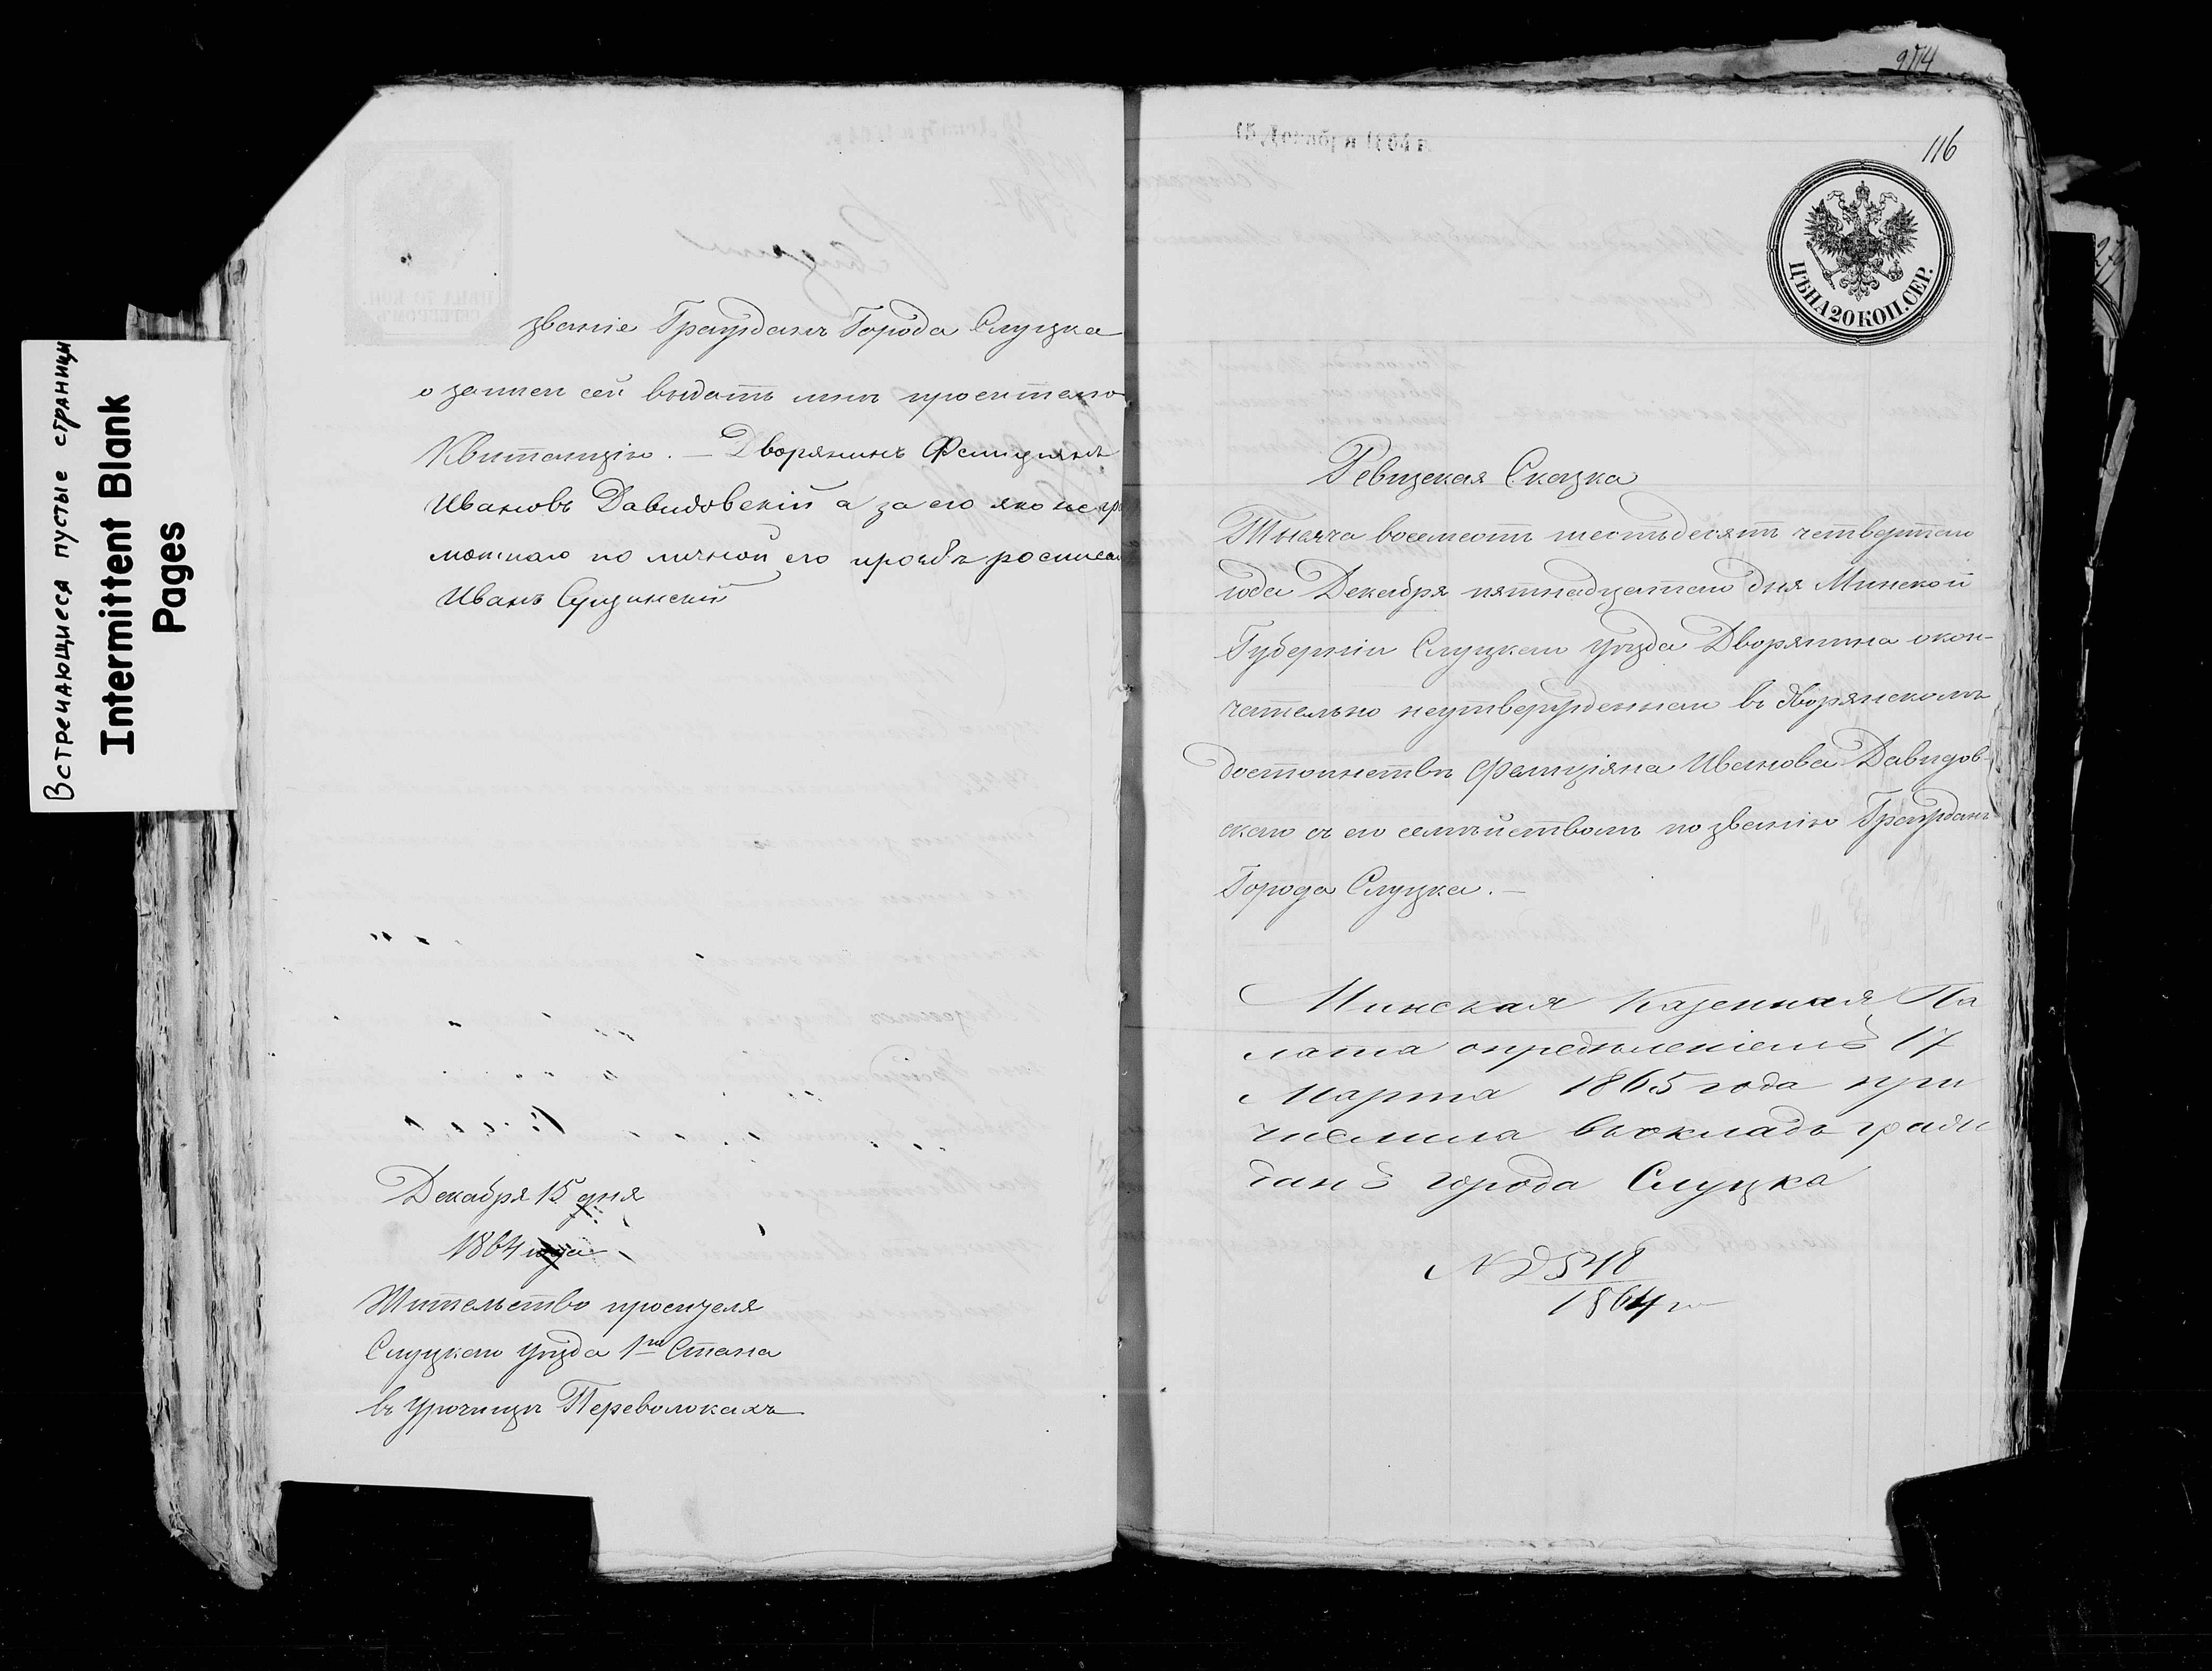 Встречающиеся пустые страницы
Intermittent Blank
Pages
званіе Гражданъ Города Слуцка
о записи сей выдать мнѣ просительно
Квитанцію. — Дворянинъ Фелиціянъ
Ивановъ Давидовскій а за его яко негра
мотнаго по личной его прозьбѣ росписал
Иванъ
Декабря 15 дня
1864 года
Жительство просителя
Слуцкаго уѣзда 1го Стана
въ урочищѣ Переволокахъ
914
116
ЦѢНА 20 КОП. СЕР.
Ревизская Сказка
Тысяча восемсотъ шестьдесятъ четвертаго
года Декабря пятнадцатаго дня Минской
Губерніи Слуцкаго уѣзда Дворянина окон-
чательно неутвержденнаго въ дворянскомъ
достоинствѣ Фелиціяна Иванова Давидов-
скаго съ его семѣйствомъ по званію Гражданъ
Города Слуцка. —
Минская Казенная Па
лата опредѣленіемъ 17
Марта 1865 года при
числила въ окладъ граж
данъ города Слуцка
№ 2548
1864 го